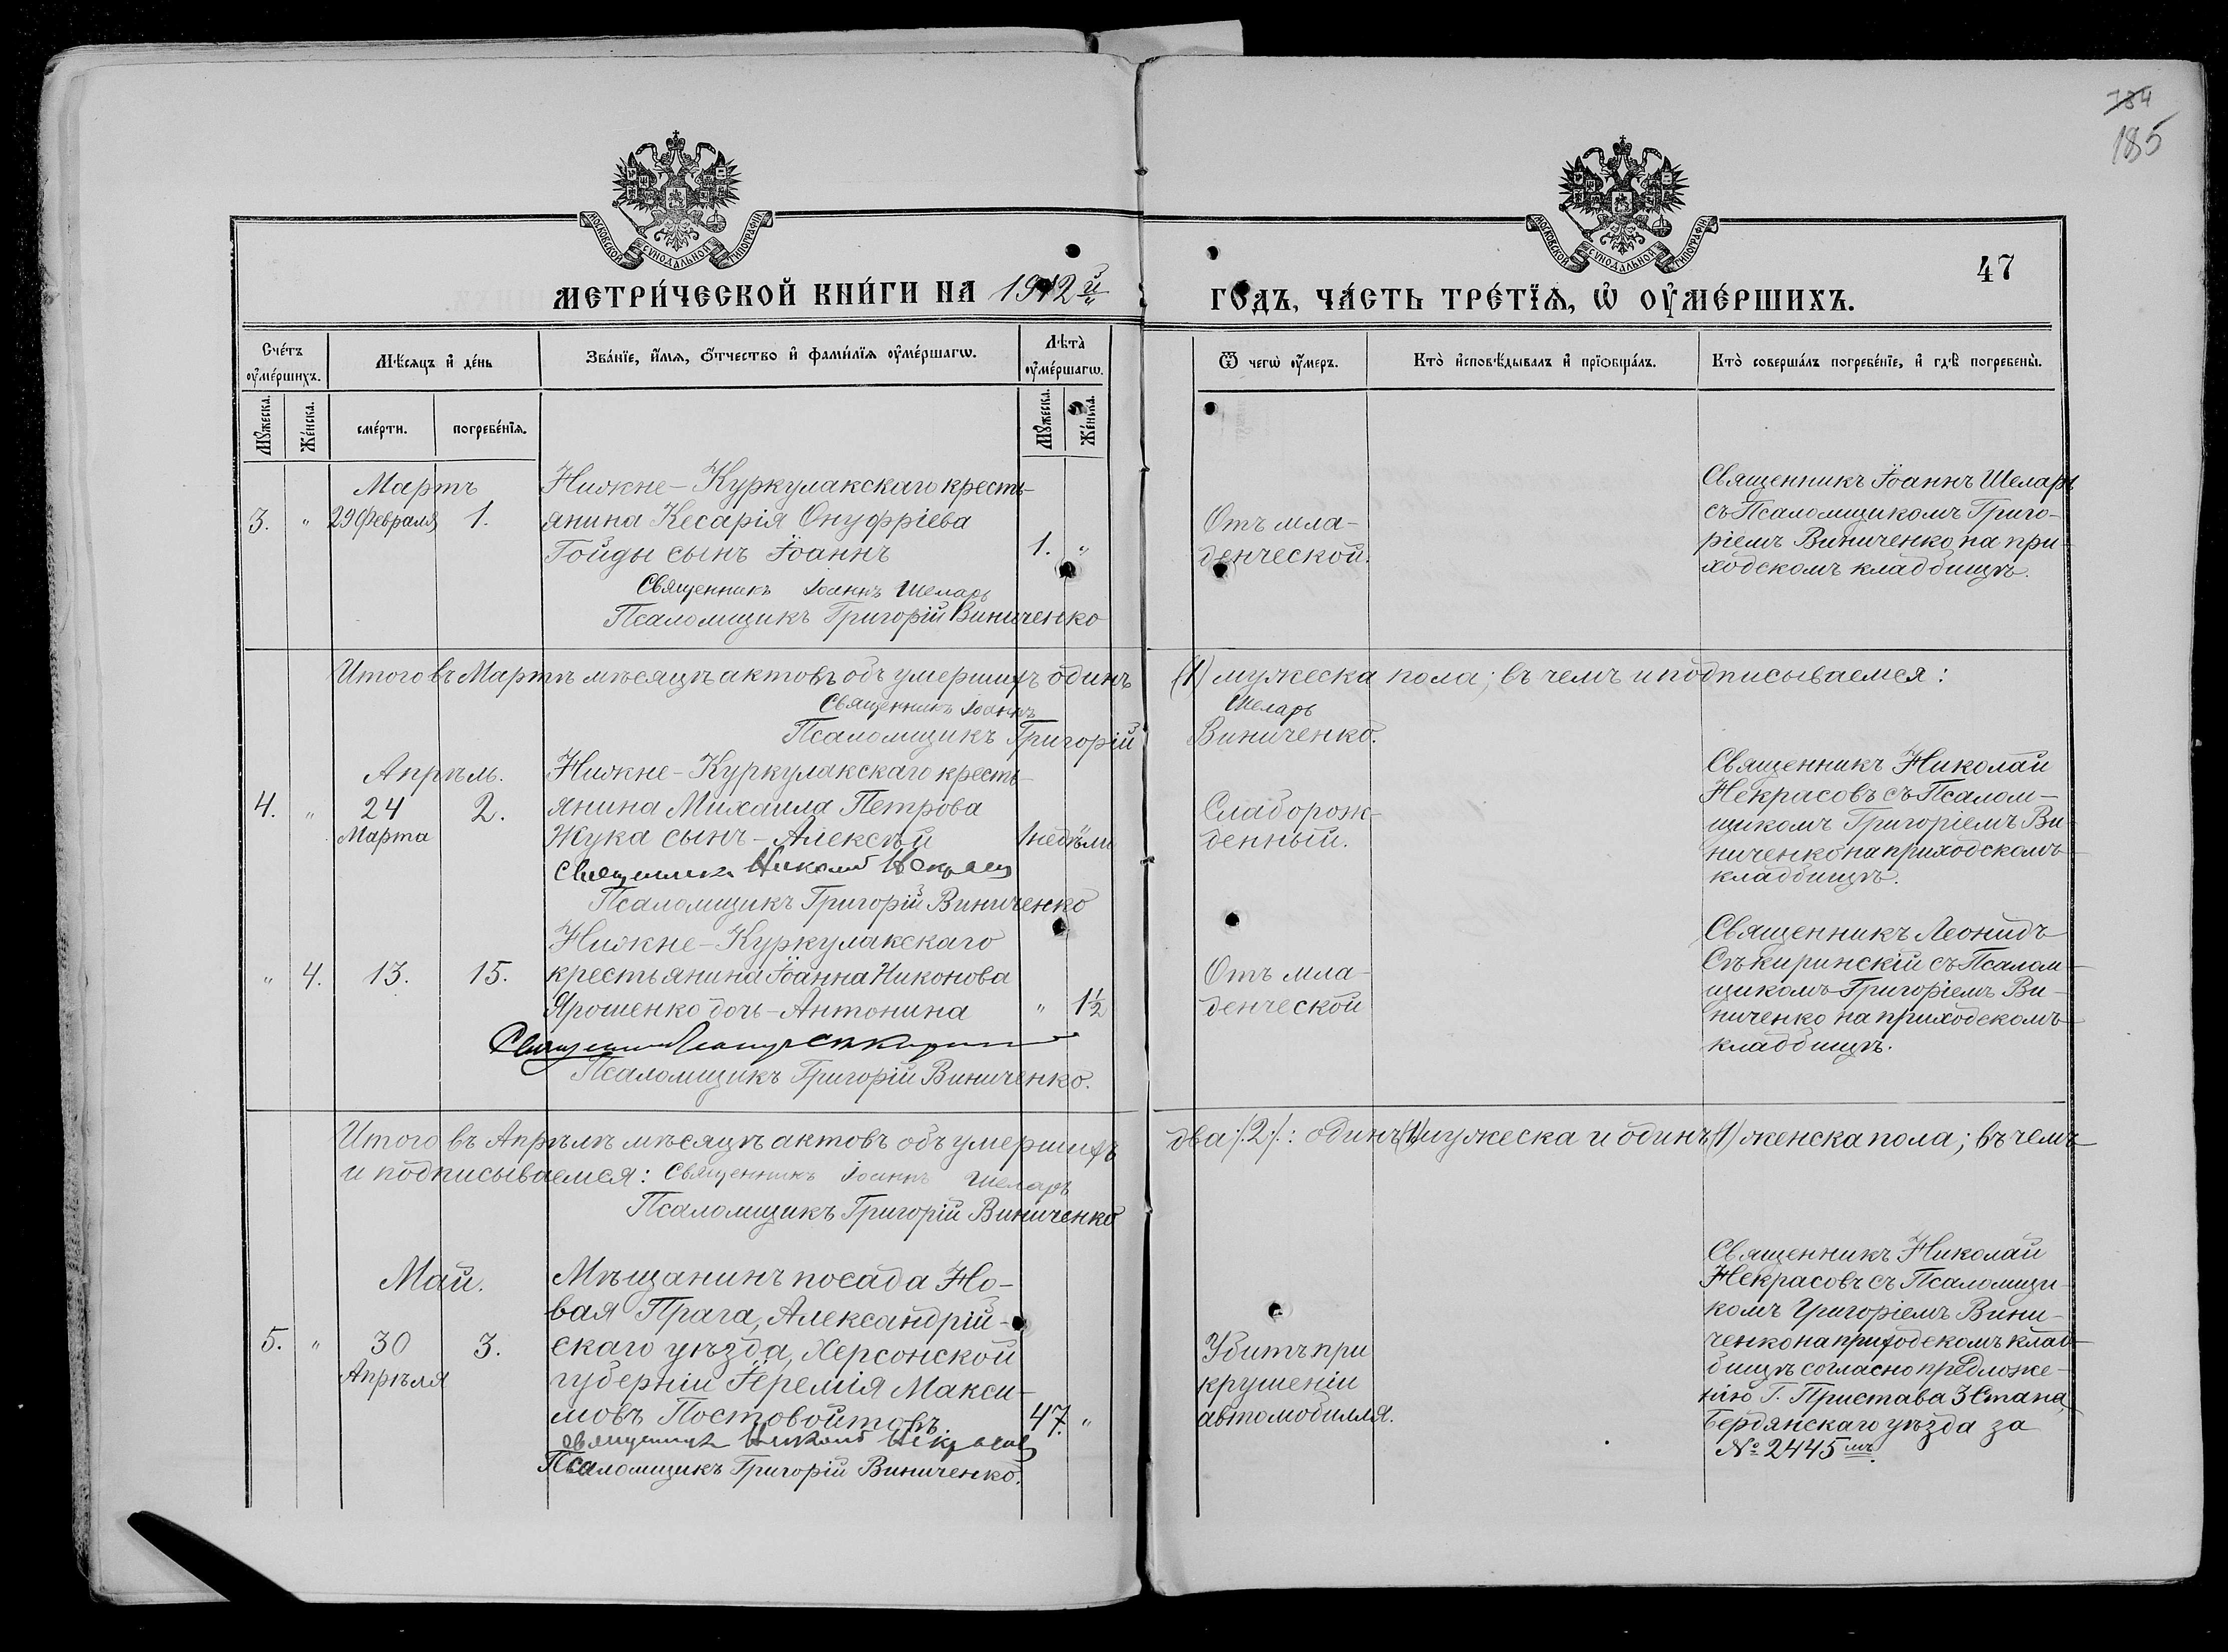 184
185
МОСКОВСКОЙ СѴНОДАЛЬНОЙ ТИПОГРАФІИ
МОСКОВСКОЙ СѴНОДАЛЬНОЙ ТИПОГРАФІИ
47
МЕТРИ́ЧЕСКОЙ КНИ́ГИ НА 1912й
ГОДЪ, ЧА́СТЬ ТРЕ́ТЇѦ, Ѡ҆ ОУ҆МЕ́РШИХЪ.
Сче́тъ оу҆ме́ршихъ.
Мѣ́сяцъ и҆ де́нь
Зва́нїе, и҆́мѧ, ѻ҆́тчество и҆ фами́лїѧ оу҆ме́ршагѡ.
Лѣ́та оу҆ме́ршагѡ.
Ѿ чегѡ̀ оу҆́меръ.
Кто̀ и҆сповѣ́дывалъ и҆ прїѻбща́лъ.
Кто̀ соверша́лъ погребе́нїе, и҆ гдѣ̀ погребены̀.
Мꙋ́жеска.
Же́нска.
сме́рти.
погребе́нїѧ.
Мꙋ́жеска.
Же́ньска.
Мартъ
Нижне-Куркулакскаго кресть-
3. " 29 Февраля 1. янина Кесарія Онуфріева
Гойды сынъ Іоаннъ 1. "
Священникъ Іоаннъ Шеларь
Псаломщикъ Григорій Виниченко
Отъ мла-
денческой.
Священникъ Іоаннъ Шеларь
съ Псаломщикомъ Григо-
ріемъ Виниченко на при-
ходскомъ кладбищѣ.
Итого въ Мартѣ мѣсяцѣ актовъ объ умершихъ одинъ (1) мужеска пола; въ чемъ и подписываемся:
Священникъ Іоаннъ Шеларь
Псаломщикъ Григорій Виниченко.
Апрѣль.
Нижне-Куркулакскаго кресть-
4. " 24 2. янина Михаила Петрова
Марта Жука сынъ - Алексѣй недѣли
Священникъ Николай Некрасовъ
Псаломщикъ Григорій Виниченко
Слаборож-
денный.
Священникъ Николай
Некрасовъ съ Псалом-
щикомъ Григоріемъ Ви-
ниченко на приходскомъ
кладбищѣ.
Нижне-Куркулакскаго
" 4. 13. 15. крестьянина Іоанна Никонова
Ярошенко дочь - Антонина " 1½
Священникъ
Псаломщикъ Григорій Виниченко.
Отъ мла-
денческой
Священникъ Леонидъ
Сѣкиринскій съ Псалом-
щикомъ Григоріемъ Ви-
ниченко на приходскомъ
кладбищѣ.
Итого въ Апрѣлѣ мѣсяцѣ актовъ объ умершихъ два /.2/.: одинъ (1) мужеска и одинъ (1) женска пола; въ чемъ
и подписываемся: Священникъ Іоаннъ Шеларь
Псаломщикъ Григорій Виниченко
Май.
Мѣщанинъ посада Но-
вая Прага, Александрій-
5. " 30 3. скаго уѣзда, Херсонской
Апрѣля губерніи Іеремія Макси-
мовъ Постовойтовъ 47. "
Священникъ Николай Некрасовъ
Псаломщикъ Григорій Виниченко.
Убитъ при
крушеніи
автомобилля.
Священникъ Николай
Некрасовъ съ Псаломщи-
комъ Григоріемъ Вини-
ченко на приходскомъ клад-
бищѣ согласно предложе-
нію Г. Пристава 3 Стана,
Бердянскаго уѣзда за
№ 2445мъ.